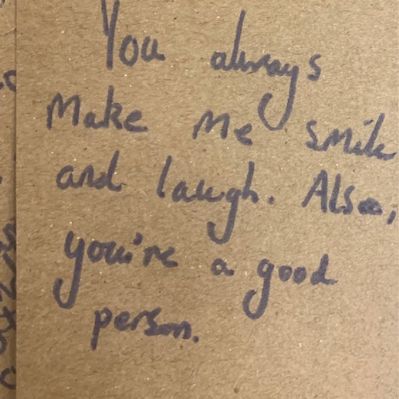 You always
Make me smile
and laugh. Also,
you're a good
person.